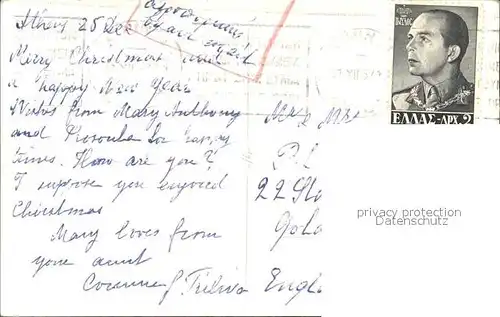 Athens 25 Dec
Merry Christmas and
a happy New Year
Wishes from Mary Anthony
and for happy
times. How are you?
I suppose you enjoyed
Christmas
Many loves from
your aunt
ΠΑΥΛΟΣ
ΕΛΛΑΣ-ΔΡΧ. 2
Mr & Mrs
P.
22
Engl
privacy protection
Datenschutz